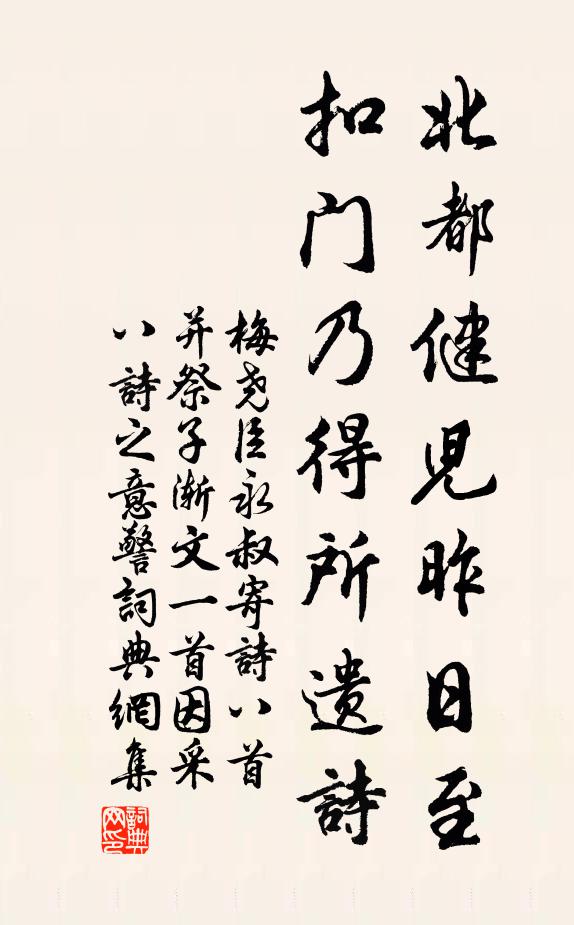 北都健児昨日至
扣门乃得所遗詩
梅尧臣永叔寄詩八首
并祭子渐文一首因采
八詩之意警詞典網集
詞典
网印